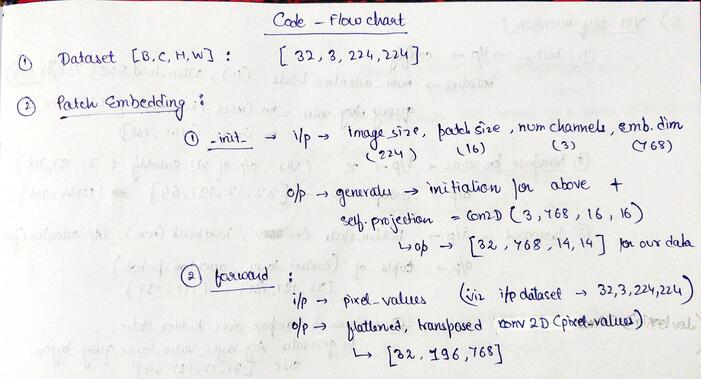 Code - Flow chart
① Dataset [B, C, H, W] : [ 32, 3, 224, 224 ]
② Patch Embedding :
① _init_ → i/p → image size, patch size, num channels, emb. dim
(224) (16) (3) (768)
o/p → generates → initiation for above +
self. projection = Con2D ( 3, 768, 16, 16 )
↳ o/p → [ 32, 768, 14, 14 ] for our data
② forward :
i/p → pixel_values (viz i/p dataset → 32, 3, 224, 224 )
o/p → flattened, transposed conv 2D (pixel_values)
↳ [ 32, 196, 768 ]